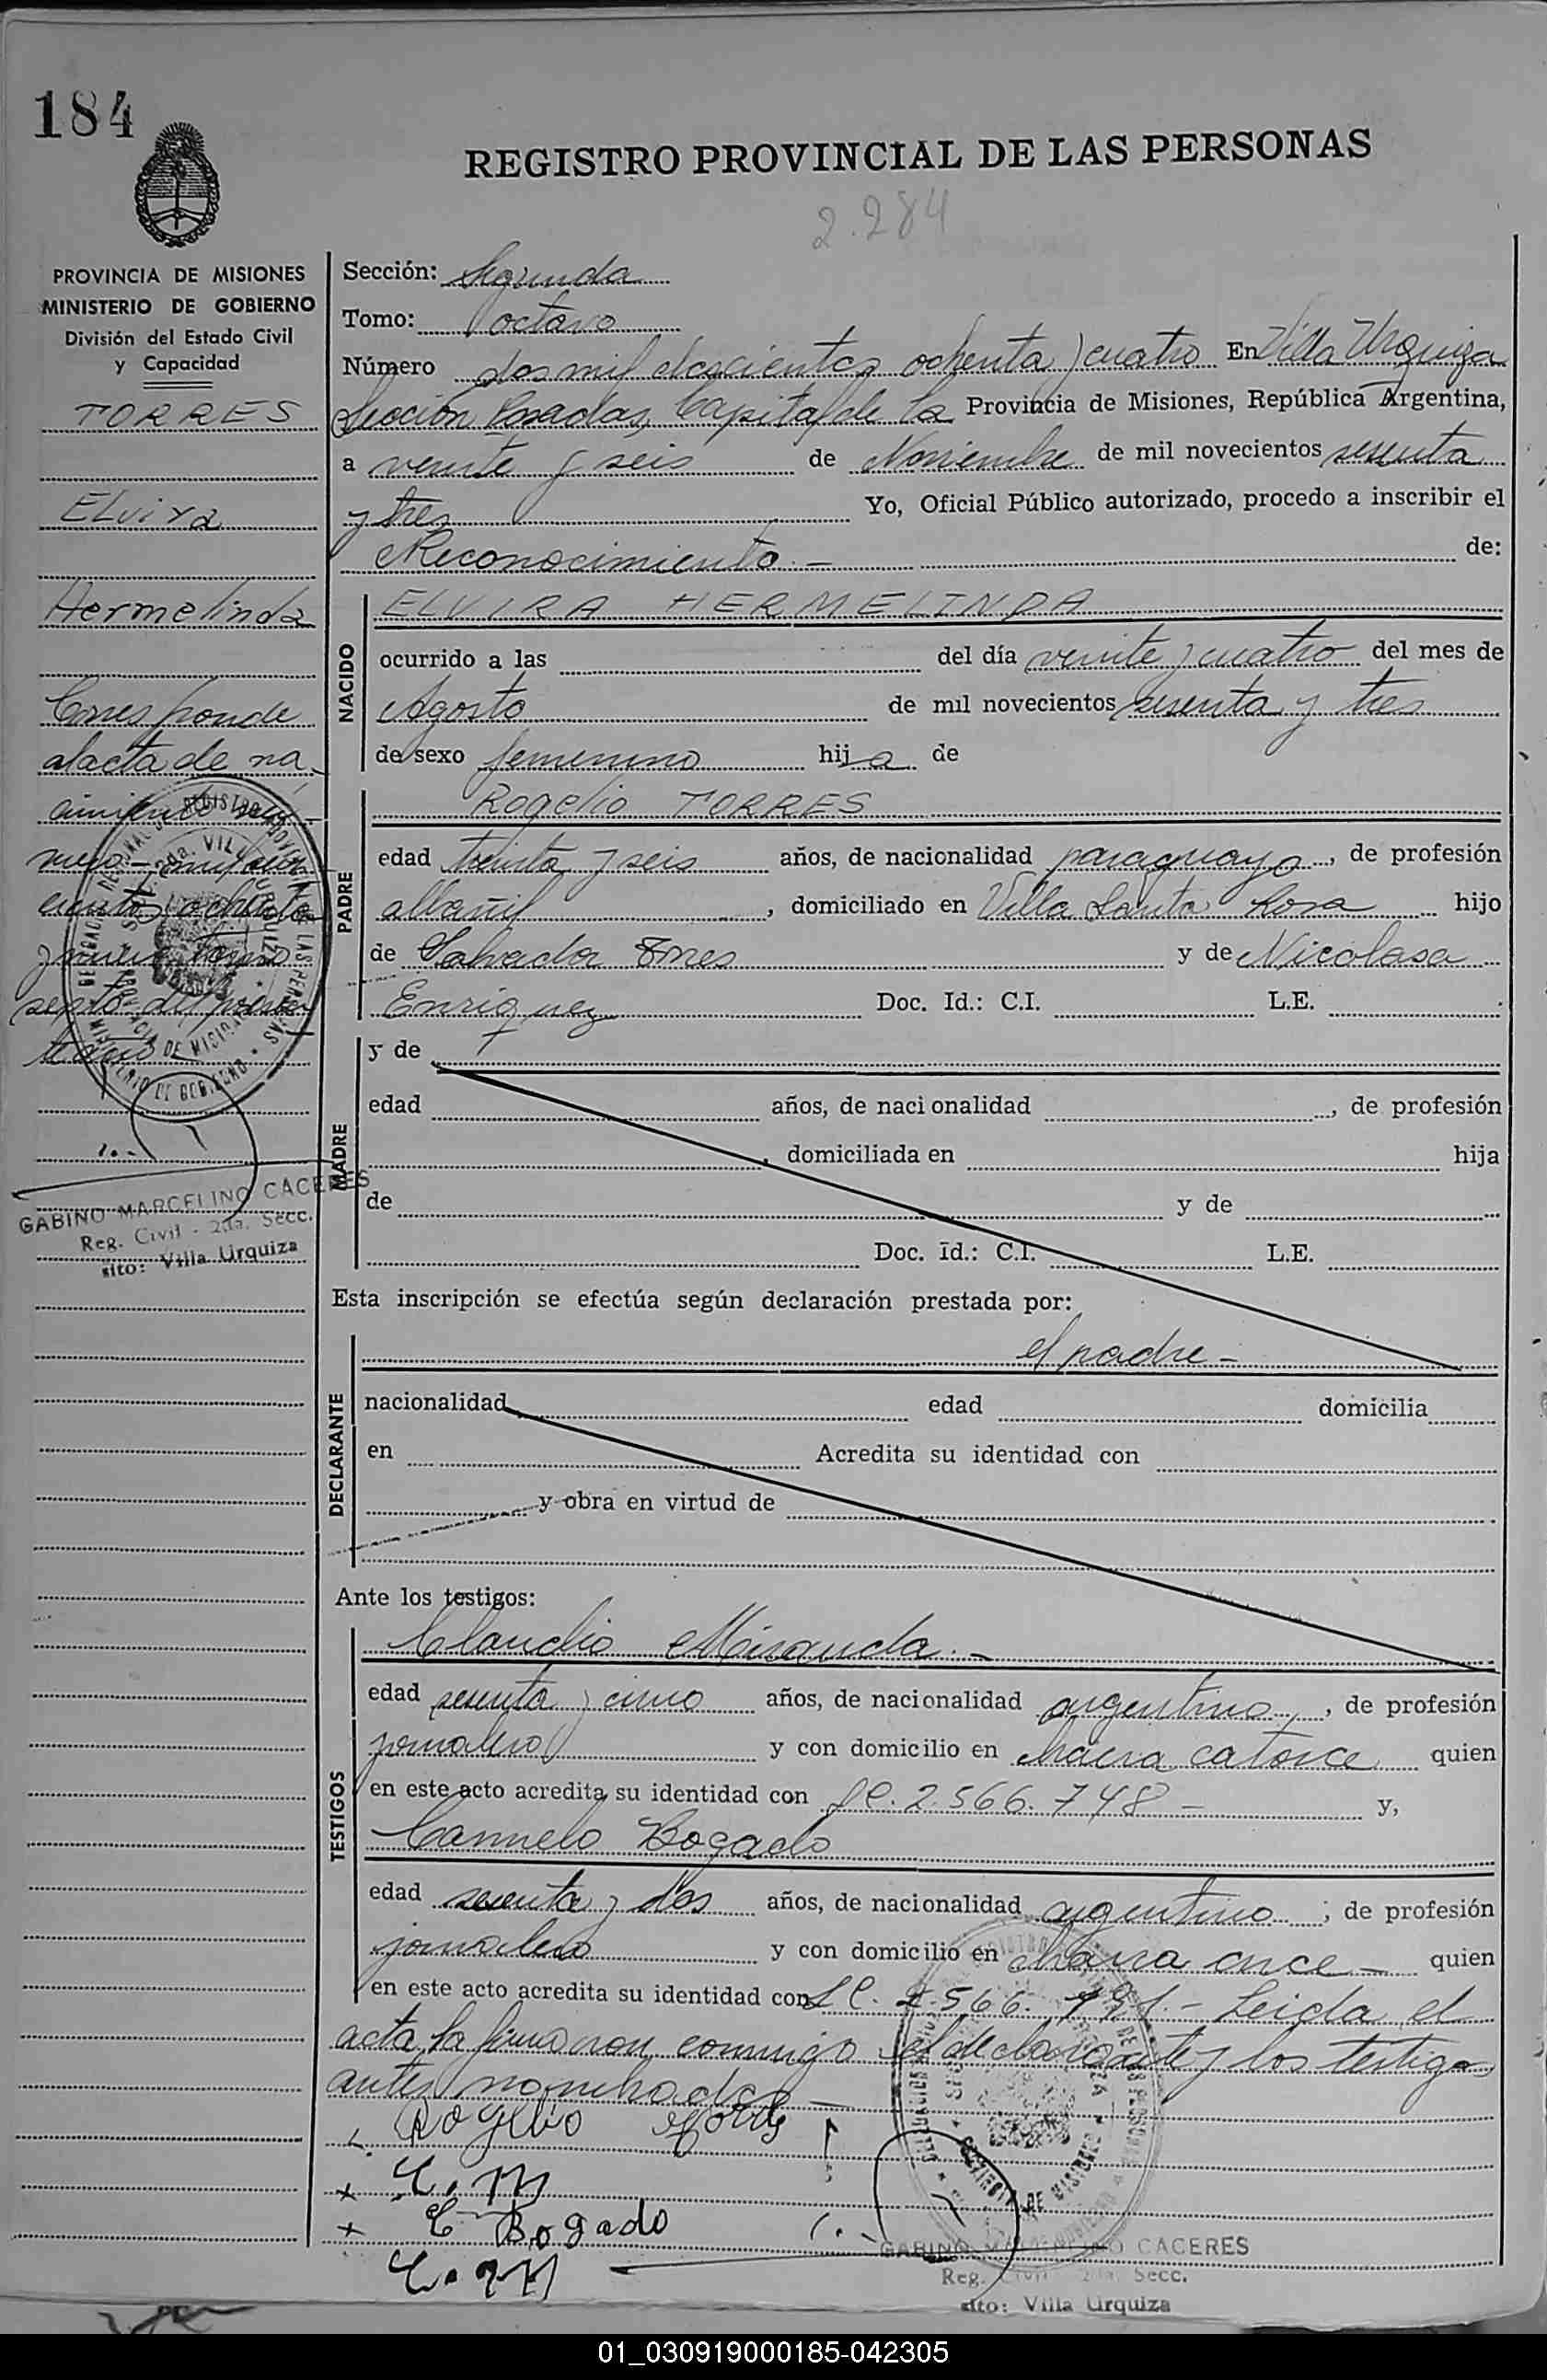 184
REGISTRO PROVINCIAL DE LAS PERSONAS
2.284
PROVINCIA DE MISIONES
MINISTERIO DE GOBIERNO
División del Estado Civil
y Capacidad
TORRES
Elvira
Hermelinda
Corresponde
al acta de na-
cimiento nú-
mero
GABINO MARCELINO CACERES
Reg. Civil - 2da. Secc.
sito: Villa Urquiza
Sección: Segunda
Tomo: octavo
Número dos mil doscientos ochenta y cuatro En Villa Urquiza
Sección Posadas, Capital de la Provincia de Misiones, República Argentina,
a veinte y seis de Noviembre de mil novecientos sesenta
y tres Yo, Oficial Público autorizado, procedo a inscribir el
Reconocimiento.- de:
NACIDO
ELVIRA HERMELINDA
ocurrido a las del día veinte y cuatro del mes de
Agosto de mil novecientos sesenta y tres
de sexo femenino hija de
PADRE
Rogelio TORRES
edad treinta y seis años, de nacionalidad paraguayo, de profesión
albañil, domiciliado en Villa Santa Rosa hijo
de Salvador Torres y de Nicolasa
Enriquez Doc. Id.: C.I. L.E.
MADRE
y de
edad años, de nacionalidad , de profesión
, domiciliada en hija
de y de
Doc. Id.: C.I. L.E.
Esta inscripción se efectúa según declaración prestada por:
el padre -
DECLARANTE
nacionalidad edad domicilia
en Acredita su identidad con
y obra en virtud de
Ante los testigos:
TESTIGOS
Claudio Miranda.-
edad sesenta y cinco años, de nacionalidad argentino, de profesión
jornalero y con domicilio en chacra catorce quien
en este acto acredita su identidad con 2.566.748 - y,
Carmelo Bogado
edad sesenta y dos años, de nacionalidad argentino; de profesión
jornalero y con domicilio en chacra once - quien
en este acto acredita su identidad con Leida el
acta la firmaron conmigo el declarante y los testigos
antes nombrados -
Rogelio Torres
x C. M
x C Bogado
C. M
GABINO MARCELINO CACERES
Reg. Civil 2da. Secc.
sito: Villa Urquiza
01_030919000185-042305